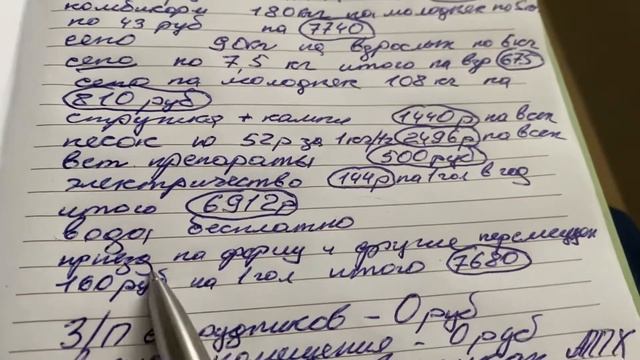 комбикорм 180 кг на молодняк по 6 кг
по 43 руб на 7740
сено 90кг на взрослых по 6 кг
сено по 7,5 кг итого на взр 675
сено на молодняк 108 кг на
810 руб
стружка + камни 1440р на всех
песок по 52р за 1кг 2496р на всех
вет препараты 500руб
электричество 144р на 1 гол в год
итого 6912р
вода бесплатно
приезд на ферму и другие перемещен
160руб на 1 гол итого 7680
З/П сотрудников - 0 руб
помещения - 0 руб